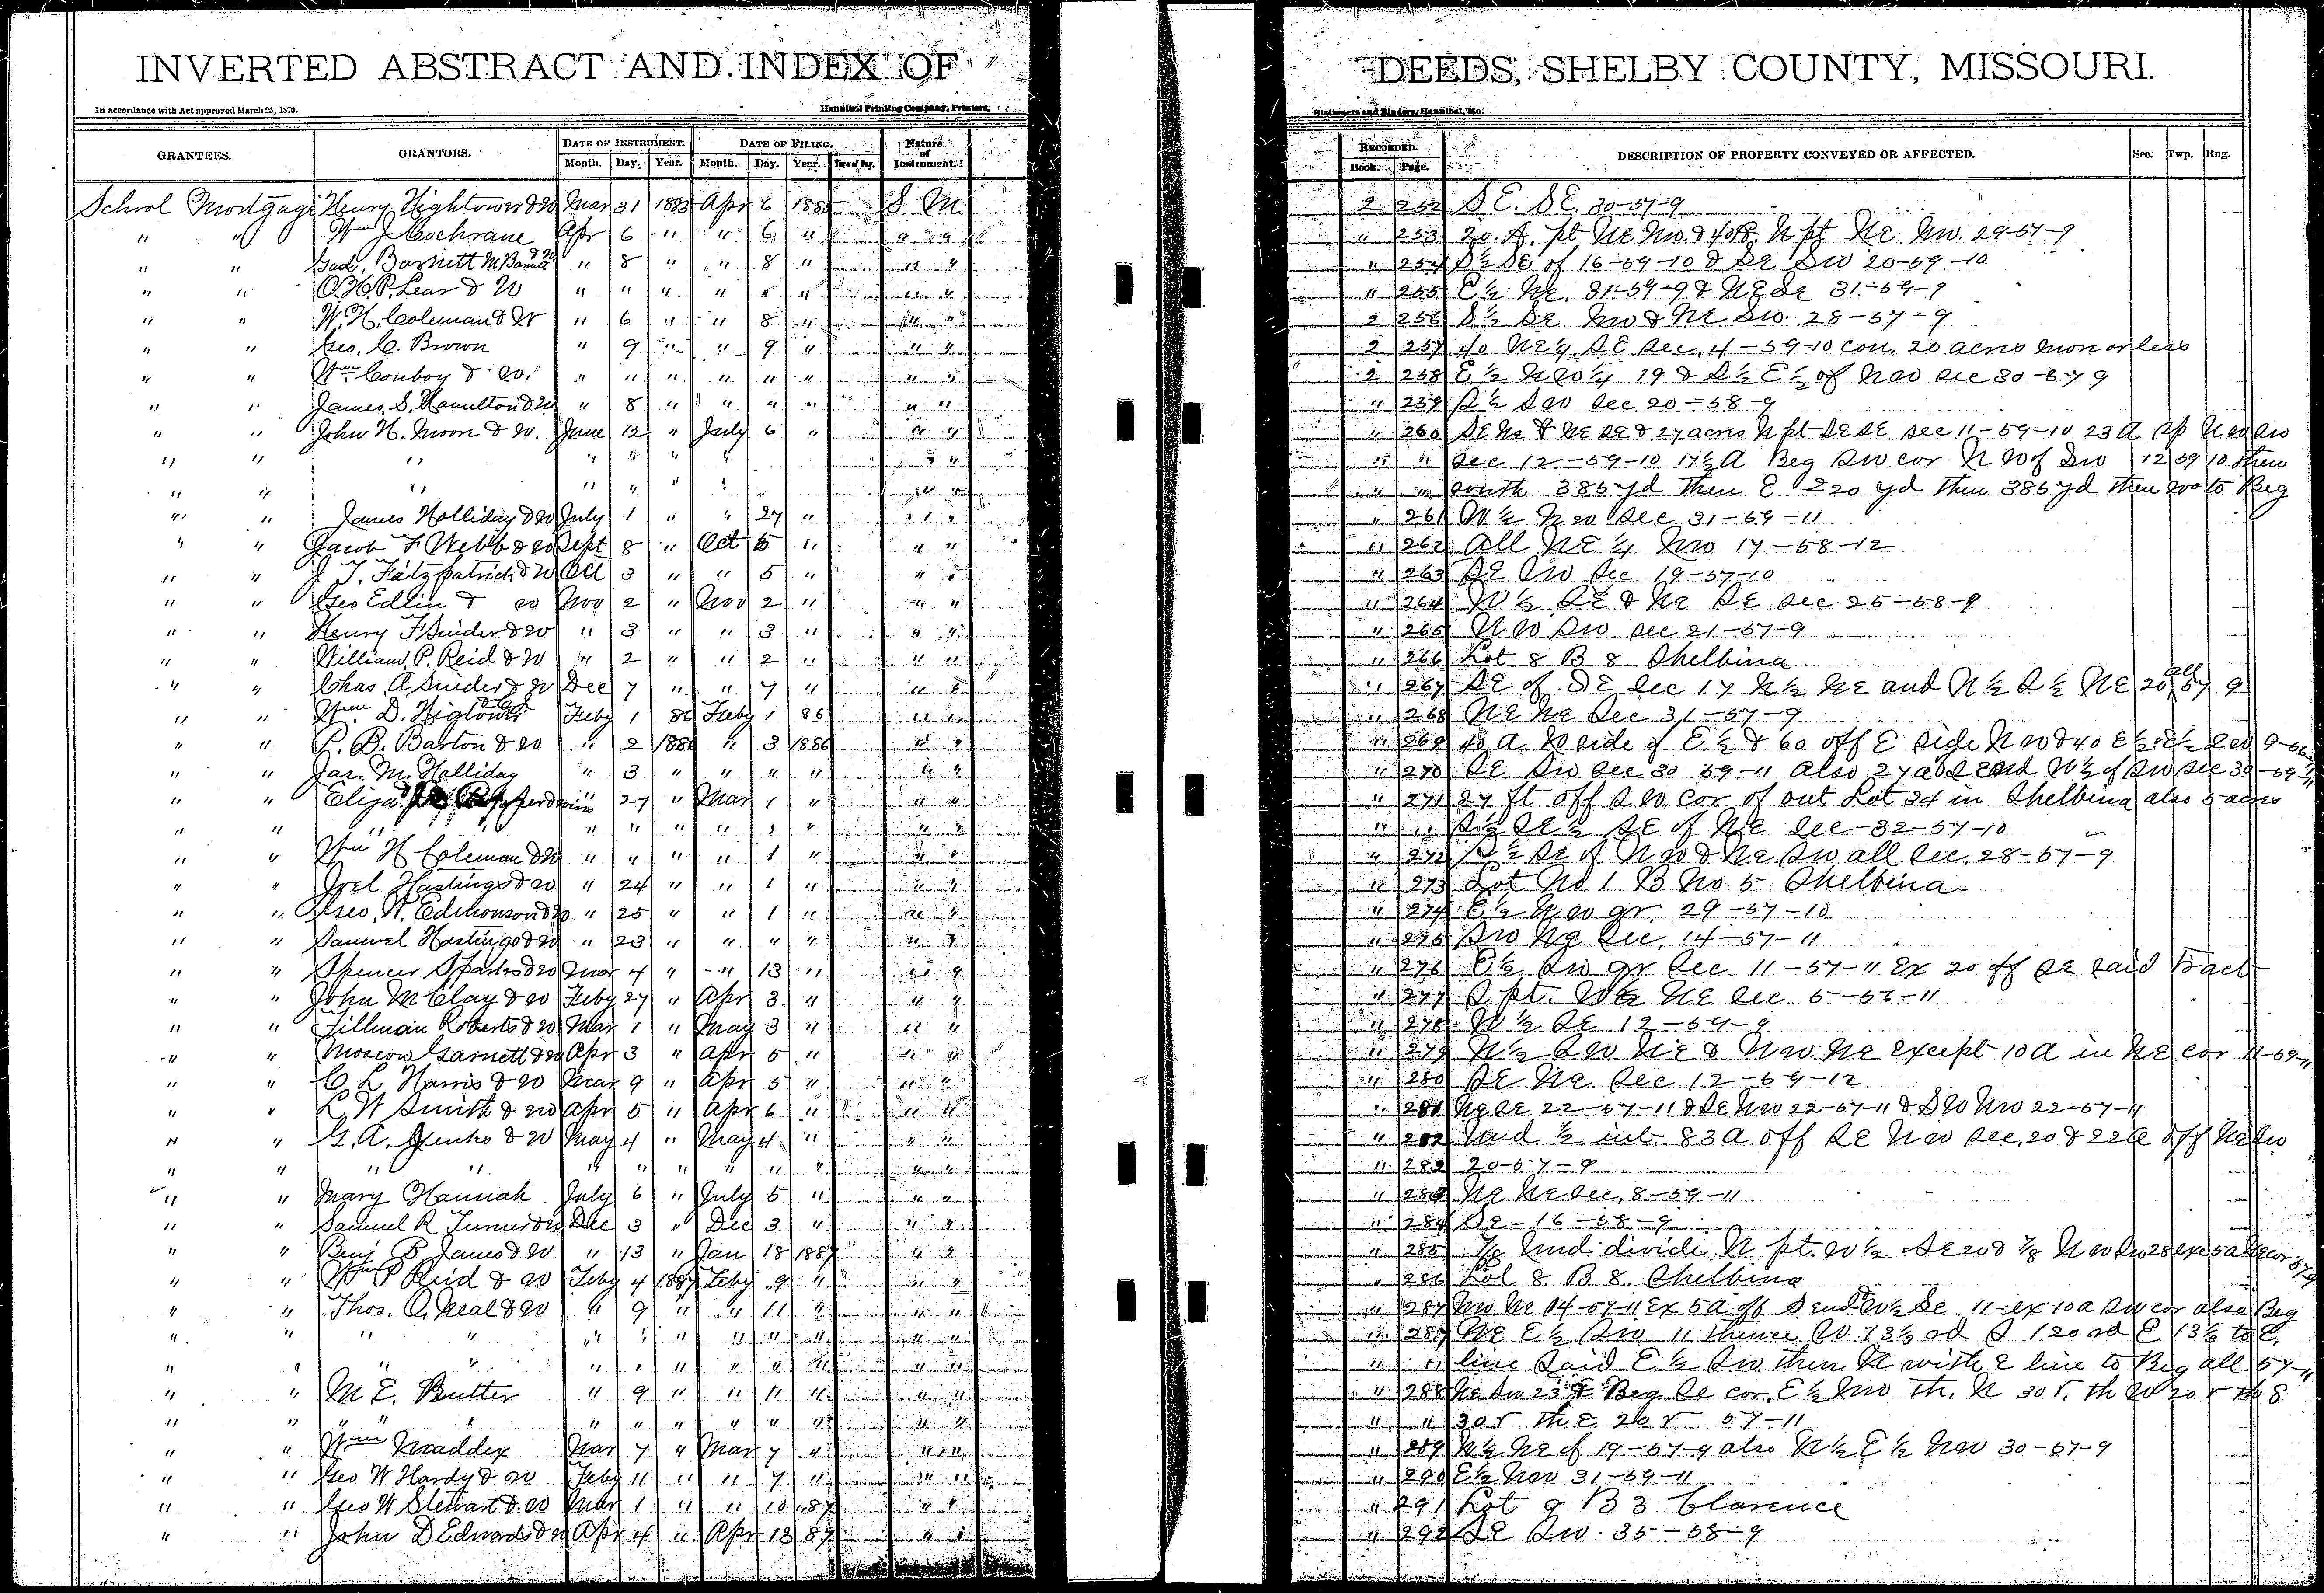 INVERTED ABSTRACT AND INDEX OF DEEDS, SHELBY COUNTY, MISSOURI.
In accordance with Act approved March 25, 1870. Hannibal Printing Company, Printers, Stationers and Binders, Hannibal, Mo.
GRANTEES. GRANTORS. DATE OF INSTRUMENT. DATE OF FILING. Nature of Instrument. RECORDED. DESCRIPTION OF PROPERTY CONVEYED OR AFFECTED. Sec. Twp. Rng.
Month. Day. Year. Month. Day. Year. Time of Day. Book. Page.
School Mortgage Henry Hightower & W Mar 31 1885 Apr 6 1885 S M 2 252 S E. S E. 30-57-9
" " Wm J Cochrane Apr 6 " " 6 " " " " 253 20 A. pt NE NW & 40 A N pt NE NW. 29-57-9
" " Gad. Barnett M Barnett & W " 8 " " 8 " " " " 254 S½ SE of 16-59-10 & SE SW 20-59-10
" " O.H.P. Lear & W " " " " " " " " " 255 E½ NE. 31-59-9 & NE SE 31-59-9
" " W. H. Coleman & W " 6 " " 8 " " " 2 256 S½ SE NW & NE SW. 28-57-9
" " Geo. C. Brown " 9 " " 9 " " " 2 257 40 NE¼ SE Sec. 4-59-10 con. 20 acres more or less
" " Wm Conboy & W. " " " " " " " " 2 258 E½ NW¼ 19 & S½ E½ of NW Sec 30-57 9
" " James S. Hamilton & W " 8 " " " " " " " 259 S½ SW Sec 20-58-9
" " John H. Moore & W. June 12 " July 6 " " " " 260 SE NE & NE SE & 27 acres N pt SE SE Sec 11-59-10 23 A NW SW
" " " " " " " " " " " Sec 12-59-10 17½ A Beg SW cor NW of SW 12 59 10 then
" " " " " " " " " " " south 385 yd then E 220 yd then 385 yd then W to Beg
" " James Holliday & W July 1 " " 27 " " " " 261 W½ NW Sec 31-59-11
" " Jacob F Webb & W Sept 8 " Oct 5 " " " " 262 All NE¼ NW 17-58-12
" " J. T. Fitzpatrick & W Oct 3 " " 5 " " " " 263 SE SW Sec 19-57-10
" " Geo Edlin & W Nov 2 " Nov 2 " " " " 264 W½ SE & NE SE Sec 25-58-9
" " Henry F Snider & W " 3 " " 3 " " " " 265 NW SW Sec 21-57-9
" " William P. Reid & W " 2 " " 2 " " " " 266 Lot 8 B 8 Shelbina
" " Chas. A. Snider & W Dec 7 " " 7 " " " " 267 SE of SE Sec 17 N½ NE and N½ S½ NE 20 all 57 9
" " Wm D. Higtower Feby 1 86 Feby 1 86 " " " 268 NE NE Sec 31-57-9
" " P. B. Barton & W " 2 1886 " 3 1886 " " " 269 40 A. W side of E½ & 60 off E side NW & 40 E½ E½ SW
" " Jas. M. Halliday " 3 " " " " " " " 270 SE SW Sec 30 59-11 also 27 A
" " Eliza " 27 " Mar 1 " " " " 271 27 ft off SW cor of out Lot 34 in Shelbina also 5 acres
" " " " " " " " " " " S½ SE½ SE of NE Sec-32-57-10
" " Wm H Coleman & W " " " " 1 " " " " 272 S½ SE of NW & NE SW all Sec. 28-57-9
" " Joel Hastings & W " 24 " " 1 " " " " 273 Lot No 1 B No 5 Shelbina
" " Geo. W. Edmonson & W " 25 " " 1 " " " " 274 E½ NW qr. 29-57-10
" " Samuel Hastings & W " 23 " " " " " " " 275 SW NE Sec. 14-57-11
" " Spencer Sparks & W Mar 4 " " 13 " " " " 276 E½ SW qr Sec 11-57-11 Ex 20 off SE said Tract
" " John M Clay & W Feby 27 " Apr 3 " " " " 277 S pt. W½ NE Sec. 5-56-11
" " Tillman Roberts & W Mar 1 " May 3 " " " " 278 W½ SE 12-59-9
" " Moscow Garnett & W Apr 3 " Apr 5 " " " " 279 N½ SW NE & NW NE except 10 A in NE cor 11-59-11
" " C. L. Harris & W Mar 9 " Apr 5 " " " " 280 SE NE Sec 12-59-12
" " L. W Smith & W Apr 5 " Apr 6 " " " " 281 NE SE 22-57-11 & SE NW 22-57-11 & SW NW 22-57-11
" " G. A. Jenks & W May 4 " May 4 " " " " 282 Und ½ int. 83 A off SE NW Sec. 20 & 22 A off NE SW
" " " " " " " " " " " " " 282 20-57-9
" " Mary Hannah July 6 " July 5 " " " " 283 NE NE Sec. 8-59-11
" " Samuel R Turner & W Dec 3 " Dec 3 " " " " 284 SE-16-58-9
" " Benj B James & W " 13 " Jan 18 1887 " " " 285 Und divide N pt. W½ SE 20 & ⅞ NW SW 28
" " Wm P Reid & W Feby 4 1887 Feby 9 " " " " 286 Lot 8 B 8 Shelbina
" " Thos. O. Neal & W " 9 " " 11 " " " " 287 NW NE 14-57-11 Ex 5 A off S end W½ SE 11-ex 10 A SW cor also Beg
" " " " " " " " " " " " 287 NE E½ SW 11 thence W 13½ rd S 120 rd E 13½ to E.
" " " " " " " " " " " " " line said E½ SW then N with E line to Beg all 57-11
" " M. E. Butter " 9 " " 11 " " " " 288 NE SW 23 & Beg SE cor. E½ NW Th. N 30 r. th W 20 r th S
" " " " " " " " " " " " " 30 r th E 20 r 57-11
" " Wm Maddex Mar 7 " Mar 7 " " " " 289 N½ NE of 19-57-9 also N½ E½ NW 30-57-9
" " Geo W Hardy & W Feby 11 " " 7 " " " " 290 E½ NW 31-59-11
" " Geo W Stewart & W Mar 1 " " 10 87 " " " 291 Lot 9 B 3 Clarence
" " John D Edwards & W Apr 4 " Apr 13 87 " " " 292 SE SW. 35-58-9